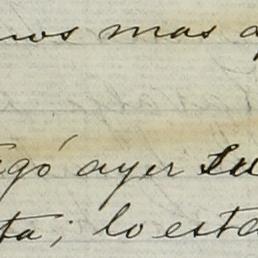 nos mas
gó ayer su
ta; lo est